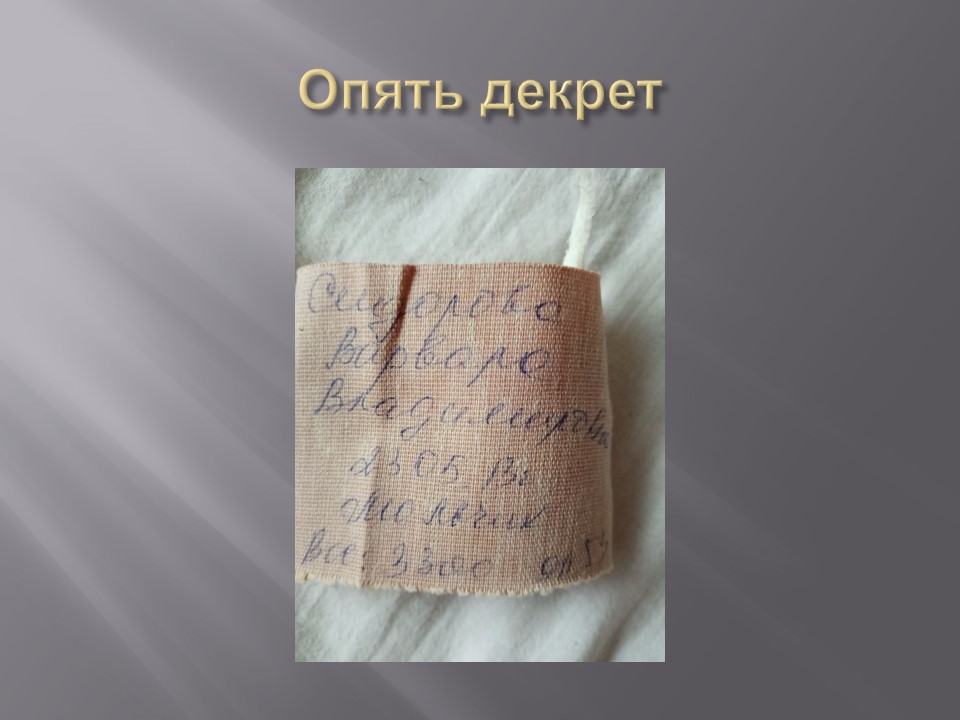 Опять декрет
Сидорова
Варвара
Владимировна
2305
мальчик
вес 3300